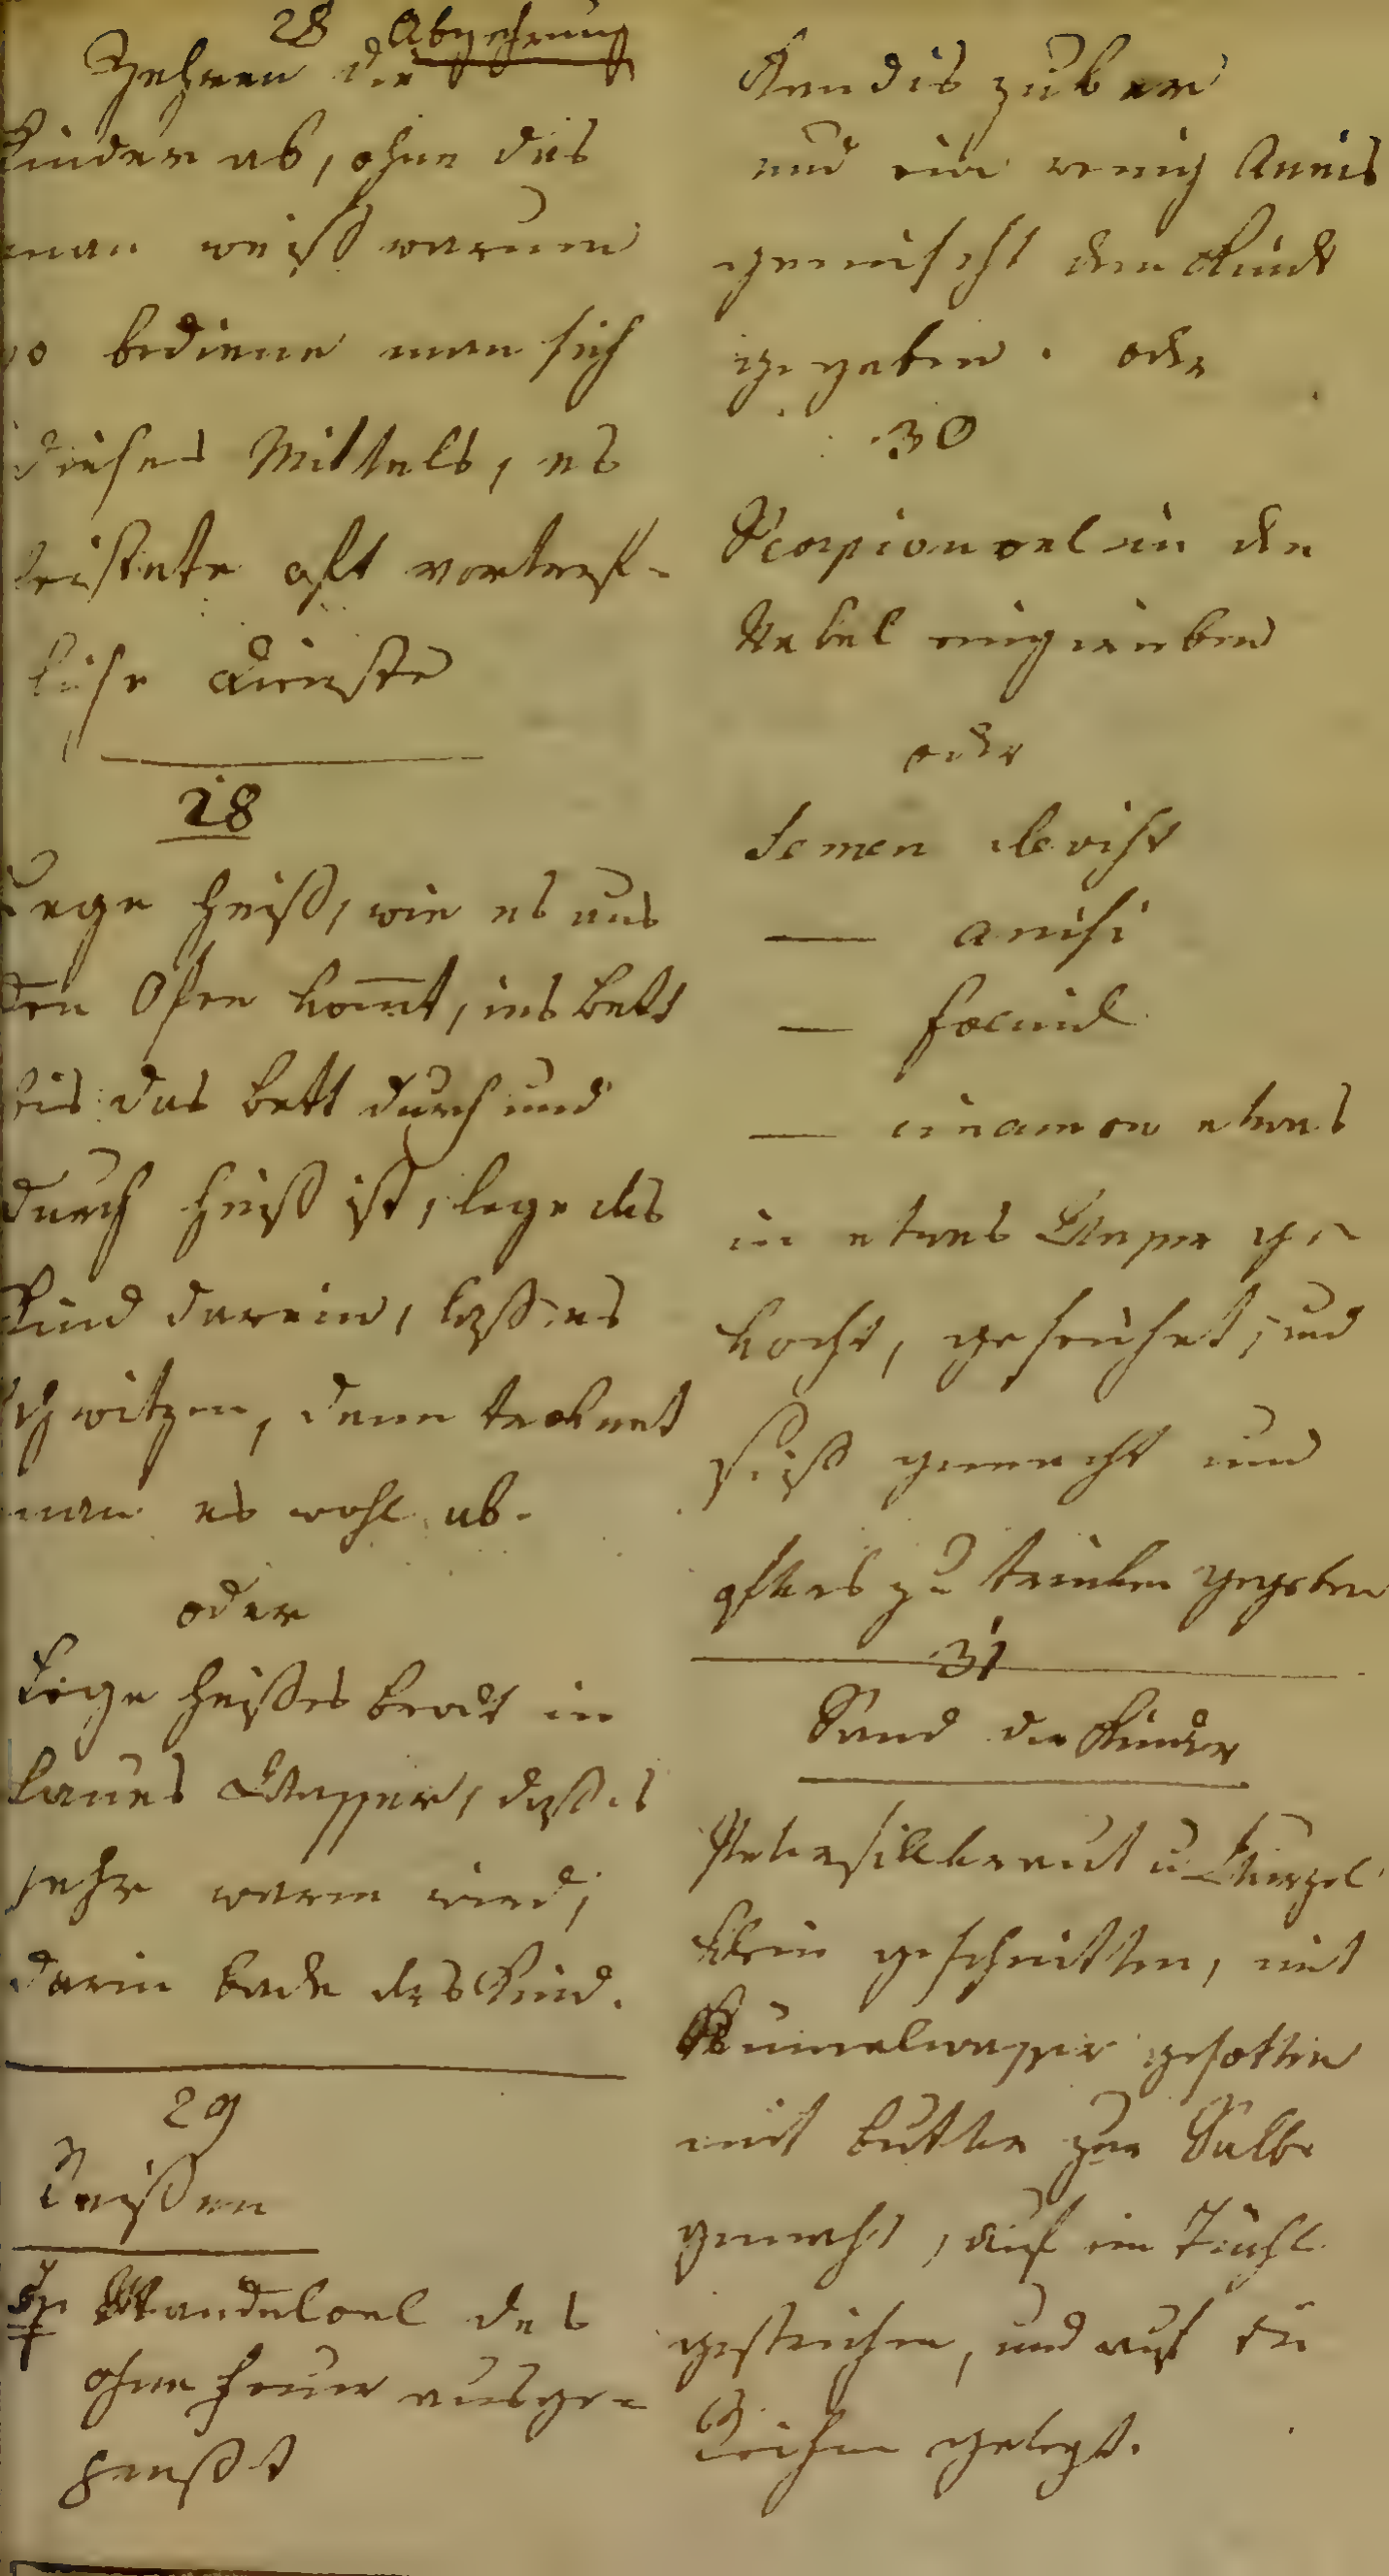 28 Abzehrung
Zehren die
Kinder ab, ohne das
man weiß warum
so bediene man sich
dieses Mittels, es
leistete oft vortref-
liche Dienste
28
Lege heiß, wie es aus
den Ofen kom̄t, ins bett
bis das bett durch und
durch heiß ist, lege das
Kind darein, laß es
schwitzen, denn troknet
man es wohl ab.
oder
Lege heißes brodt in
laues Wasser, daß es
sehr warm wird,
darin bade das Kind.
29
Reissen
Mandeloel das
ohne feuer ausge-
preßt
Kandis zuker
und ein wenig Anis
gemischt dem Kind
gegeben. oder
30
Scorpionoel in den
Nabel eingerieben
oder
Semen
— anisi
— foenic
— cinamon etwas
in etwas Wasser ge
kocht, geseihet, und
süß gemacht und
öfters zu trinken gegeben
31
Sand der Kinder
Petersillkraut u Wurzel
klein geschnitten, mit
Kümelwasser gesotten
mit butter zur Salbe
gemacht, auf ein Tuchl
gestrichen, und auf die
gelegt.